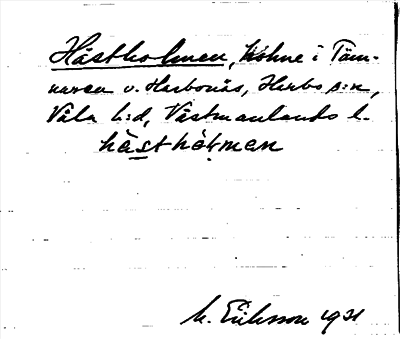 Hästholmen, holme i Täm-
naren v. Harbonäs, Harbo s:n,
Våla h:d, Västmanlands l.
hästhòḷman
M. Eriksson 1931